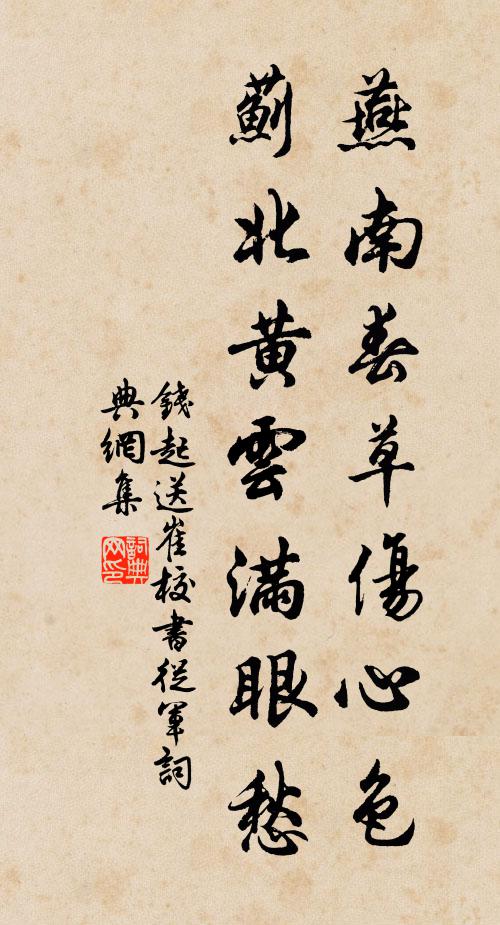 燕南春草傷心色
薊北黃雲滿眼愁
錢起送崔校書從軍詞
典網集
詞典網印